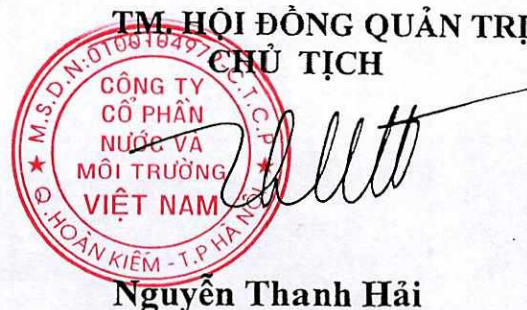 TM. HỘI ĐỒNG QUẢN TRỊ
CHỦ TỊCH
M.S.D.N:0100104979-C.T.C.P
CÔNG TY
CỔ PHẦN
NƯỚC VÀ
MÔI TRƯỜNG
VIỆT NAM
Q.HOÀN KIẾM - T.P HÀ NỘI
Nguyễn Thanh Hải